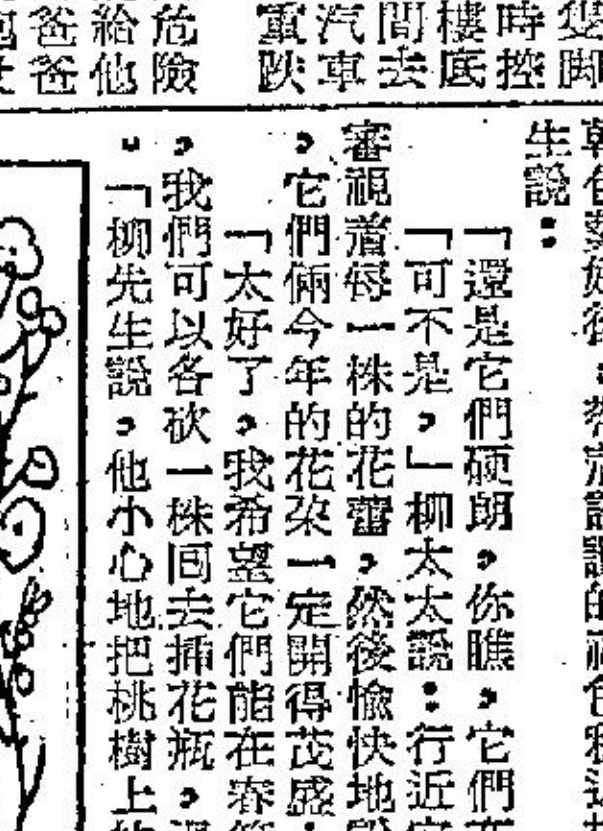 雙脚
時控
樓底
間去
汽車
重跌
危險
給他
爸爸
生說：
「還是它們硬朗，你瞧，它們
「可不是，」柳太太說：行近
審視着每一株的花蕾，然後愉快地
，它們倆今年的花朶一定開得茂盛
「太好了，我希望它們能在春
，我們可以各砍一株囘去插花瓶。
」「柳先生說，他小心地把桃樹上